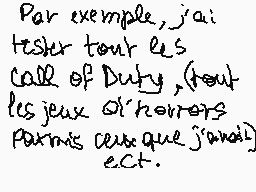 Par exemple, j'ai
tester tout les
Call of Duty, (tout
les jeux d'horrors
parmis ceux que j'avais)
ect.